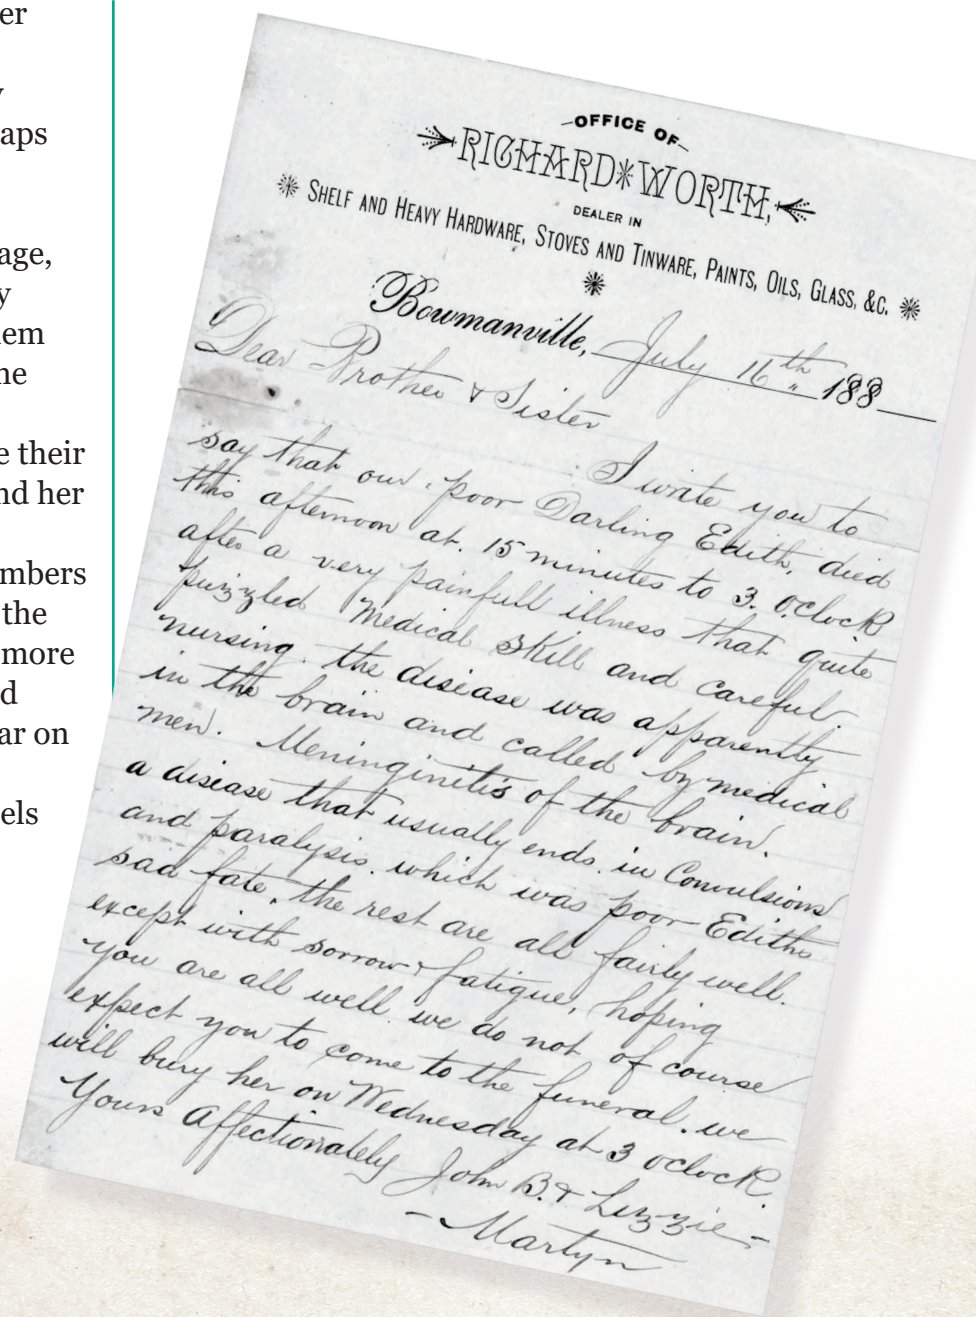 er
y
aps
age,
y
em
he
e their
nd her
mbers
the
more
d
ar on
els
OFFICE OF
RICHARD WORTH,
DEALER IN
SHELF AND HEAVY HARDWARE, STOVES AND TINWARE, PAINTS, OILS, GLASS, &C.
Bowmanville, July 16th 188
Dear Brother & Sister
I write you to
say that our poor Darling Edith, died
this afternoon at. 15 minutes to 3. OClock
after a very painfull illness that quite
puzzled Medical Skill and careful.
nursing. the disease was apparently
in the brain and called by medical
men. Meninginitis of the brain.
a disease that usually ends in Convulsions
and paralysis. which was poor Ediths
sad fate. the rest are all fairly well.
except with sorrow & fatigue, hoping
you are all well. we do not of course
expect you to come to the funeral. we
will bury her on Wednesday at 3 oclock.
Yours Affectionately John B. & Lizzie
- Martyn